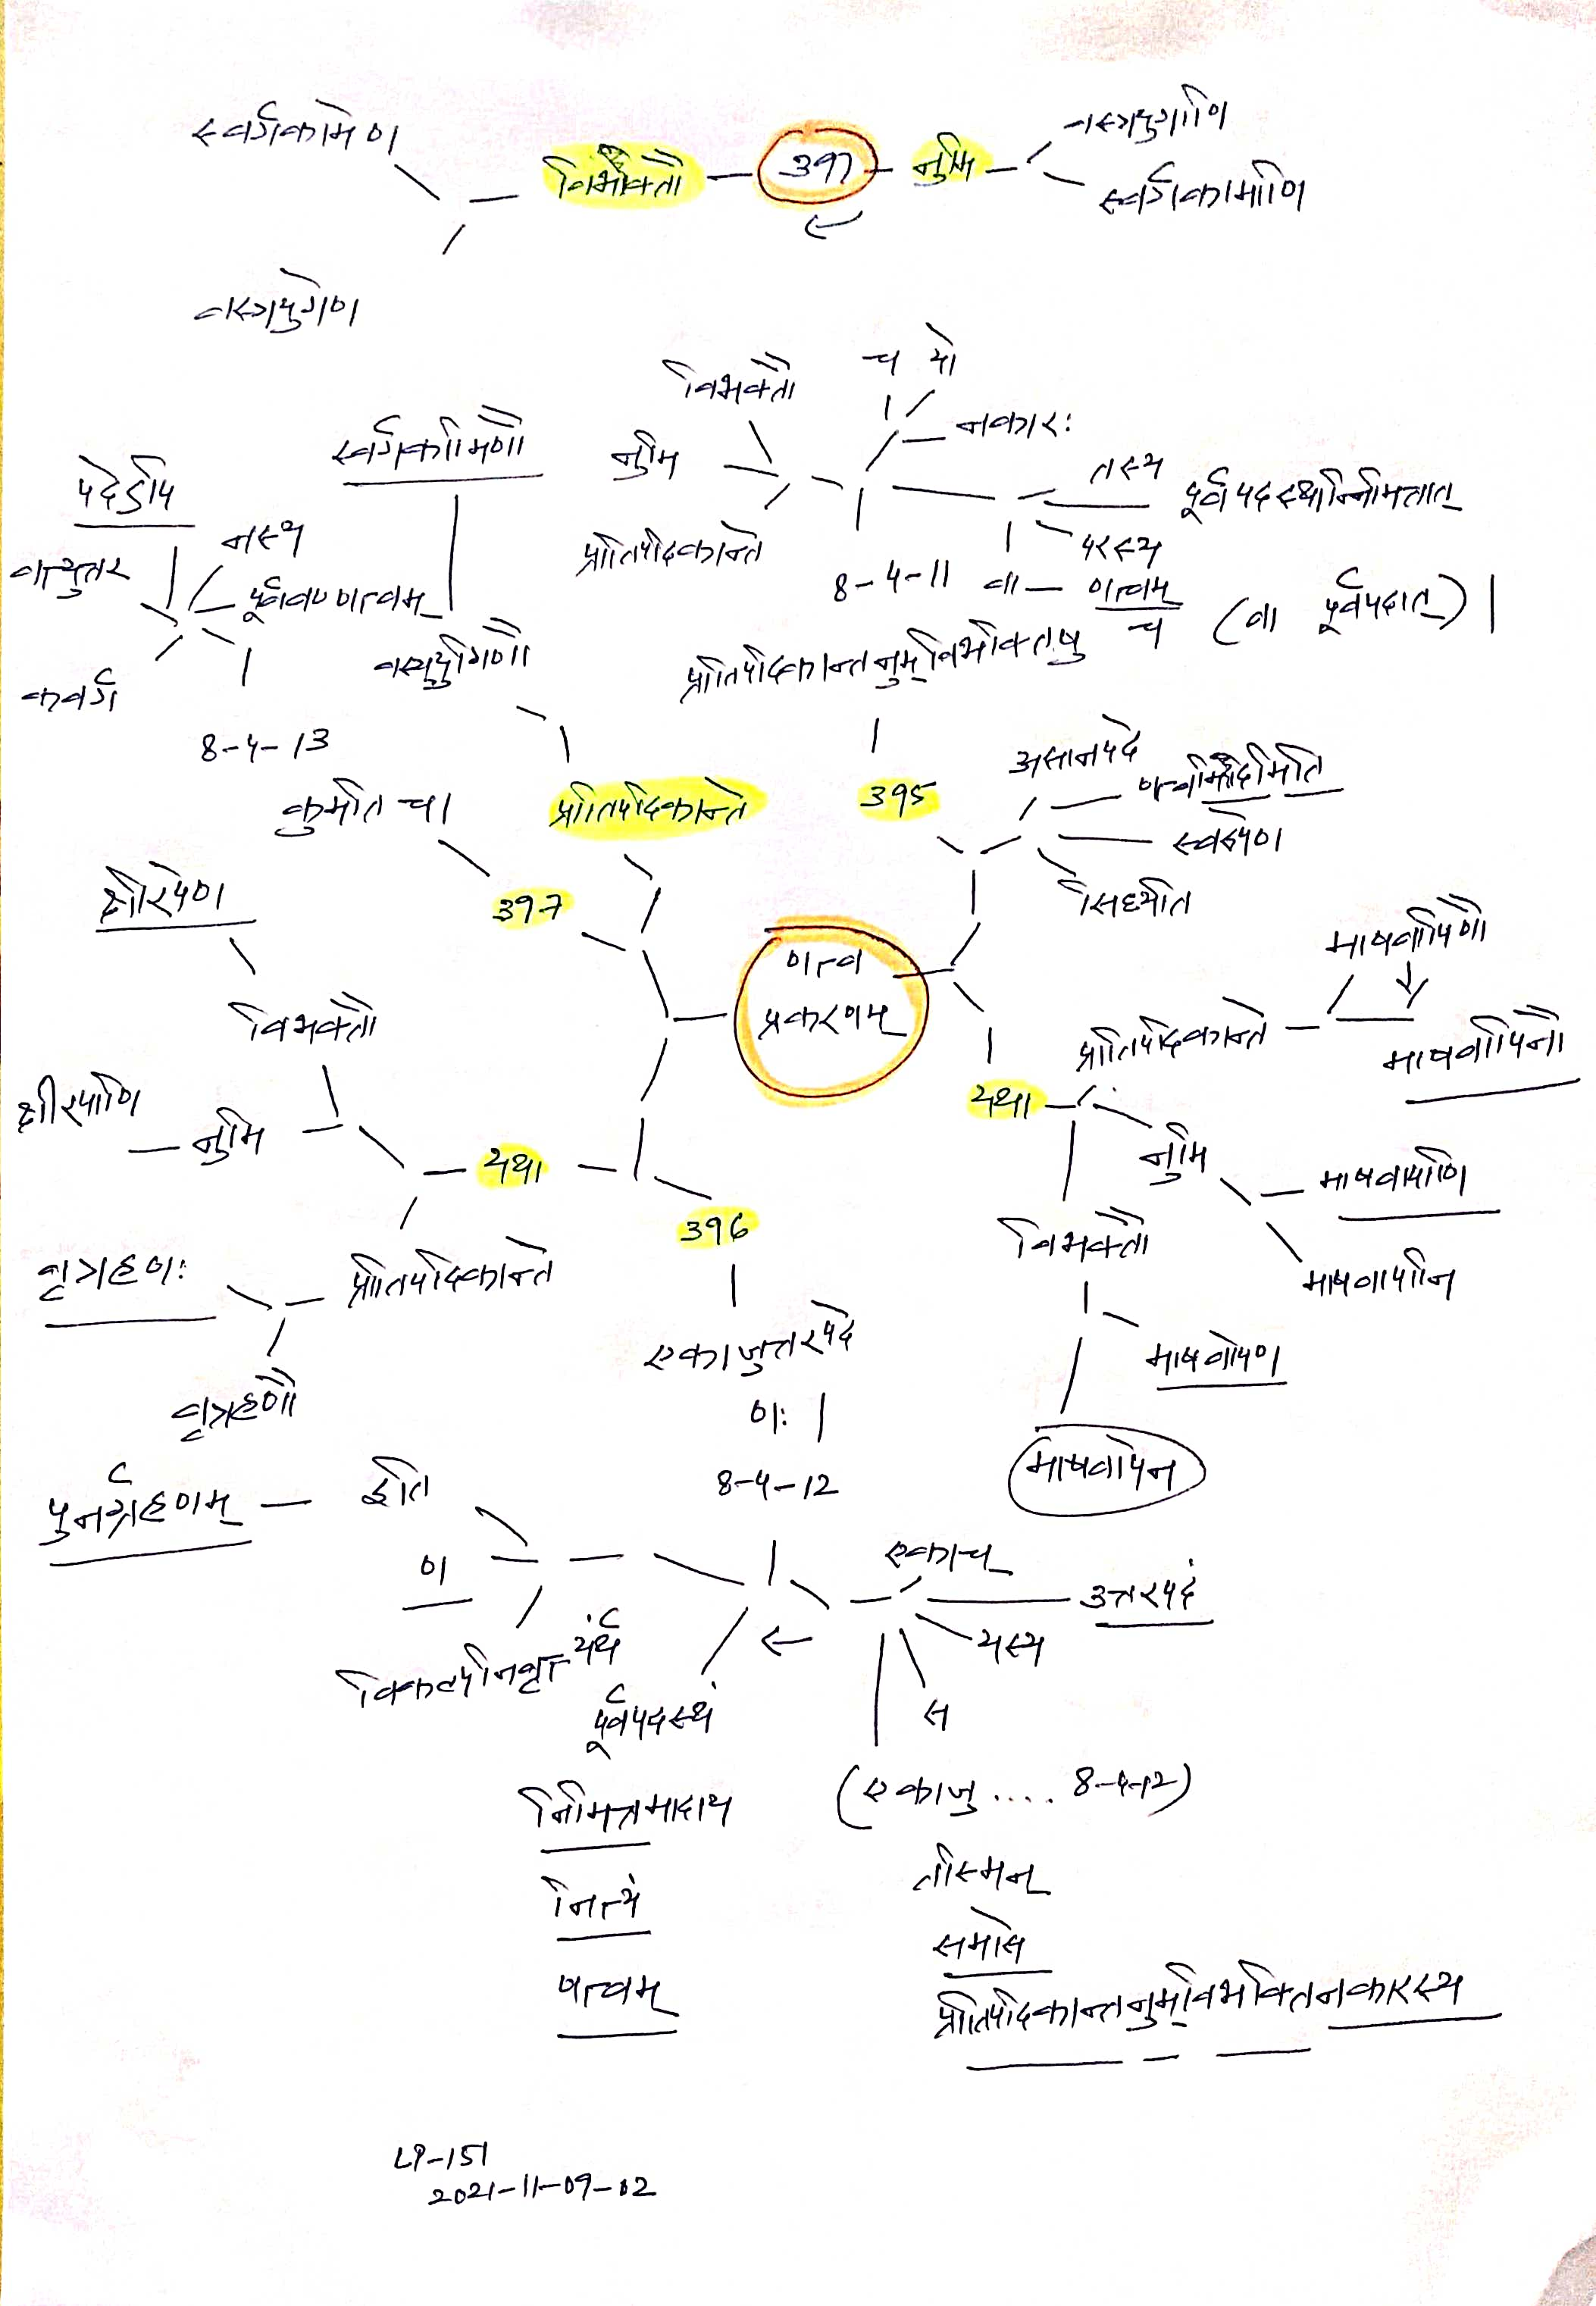 स्वर्गकामेण
विभक्तौ
397
नुमि
वस्त्रयुगाणि
स्वर्गकामाणि
वस्त्रयुगेण
विभक्तौ
च
यो
नकारः
नुमि
प्रातिपदिकान्ते
तस्य
पूर्वपदस्थान्निमित्तात्
परस्य
8-4-11
वा
णत्वम्
प्रातिपदिकान्तनुम्विभक्तिषु च (वा पूर्वपदात्) |
395
स्वर्गकामिणौ
पदेऽपि
नस्य
पूर्ववण्णत्वम्
कवर्ग
8-4-13
कुमति च।
397
प्रातिपदिकान्ते
असमानपदे
स्वरूपेण
क्षीरपेण
विभक्तौ
णत्व
प्रकरणम्
माषवापिणौ
प्रातिपदिकान्ते
माषवापिनौ
क्षीरपाणि
नुमि
यथा
यथा
नुमि
माषवापाणि
माषवापानि
396
विभक्तौ
वृत्रहणः
प्रातिपदिकान्ते
वृत्रहणौ
एकाजुत्तरपदे
णः |
8-4-12
माषवापेण
माषवापेन
पुनर्ग्रहणम्
इति
ण
एकाच्
उत्तरपदं
यस्य
स
पूर्वपदस्थं
निमित्तमादाय
नित्यं
(एकाजु.... 8-4-12)
तस्मिन्
समासे
प्रातिपदिकान्तनुम्विभक्तिनकारस्य
LP-151
2021-11-09-02